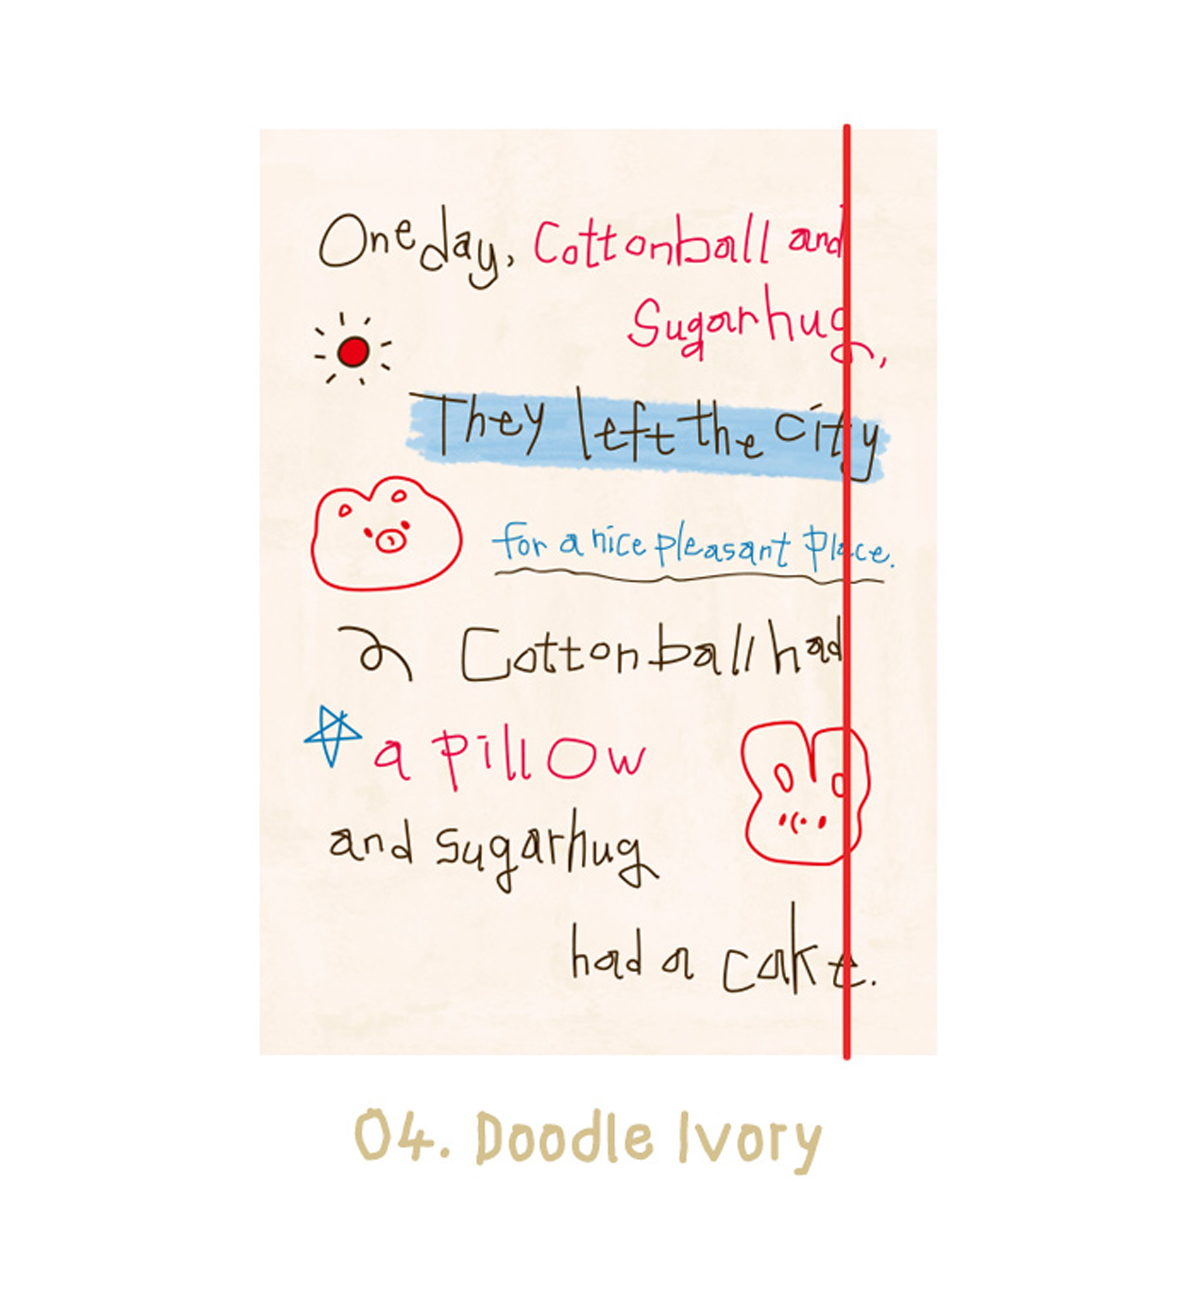 One day, Cottonball and
Sugarhug,
They left the city
for a nice pleasant place.
Cottonball had
a pillow
and sugarhug
had a cake.
04. Doodle Ivory